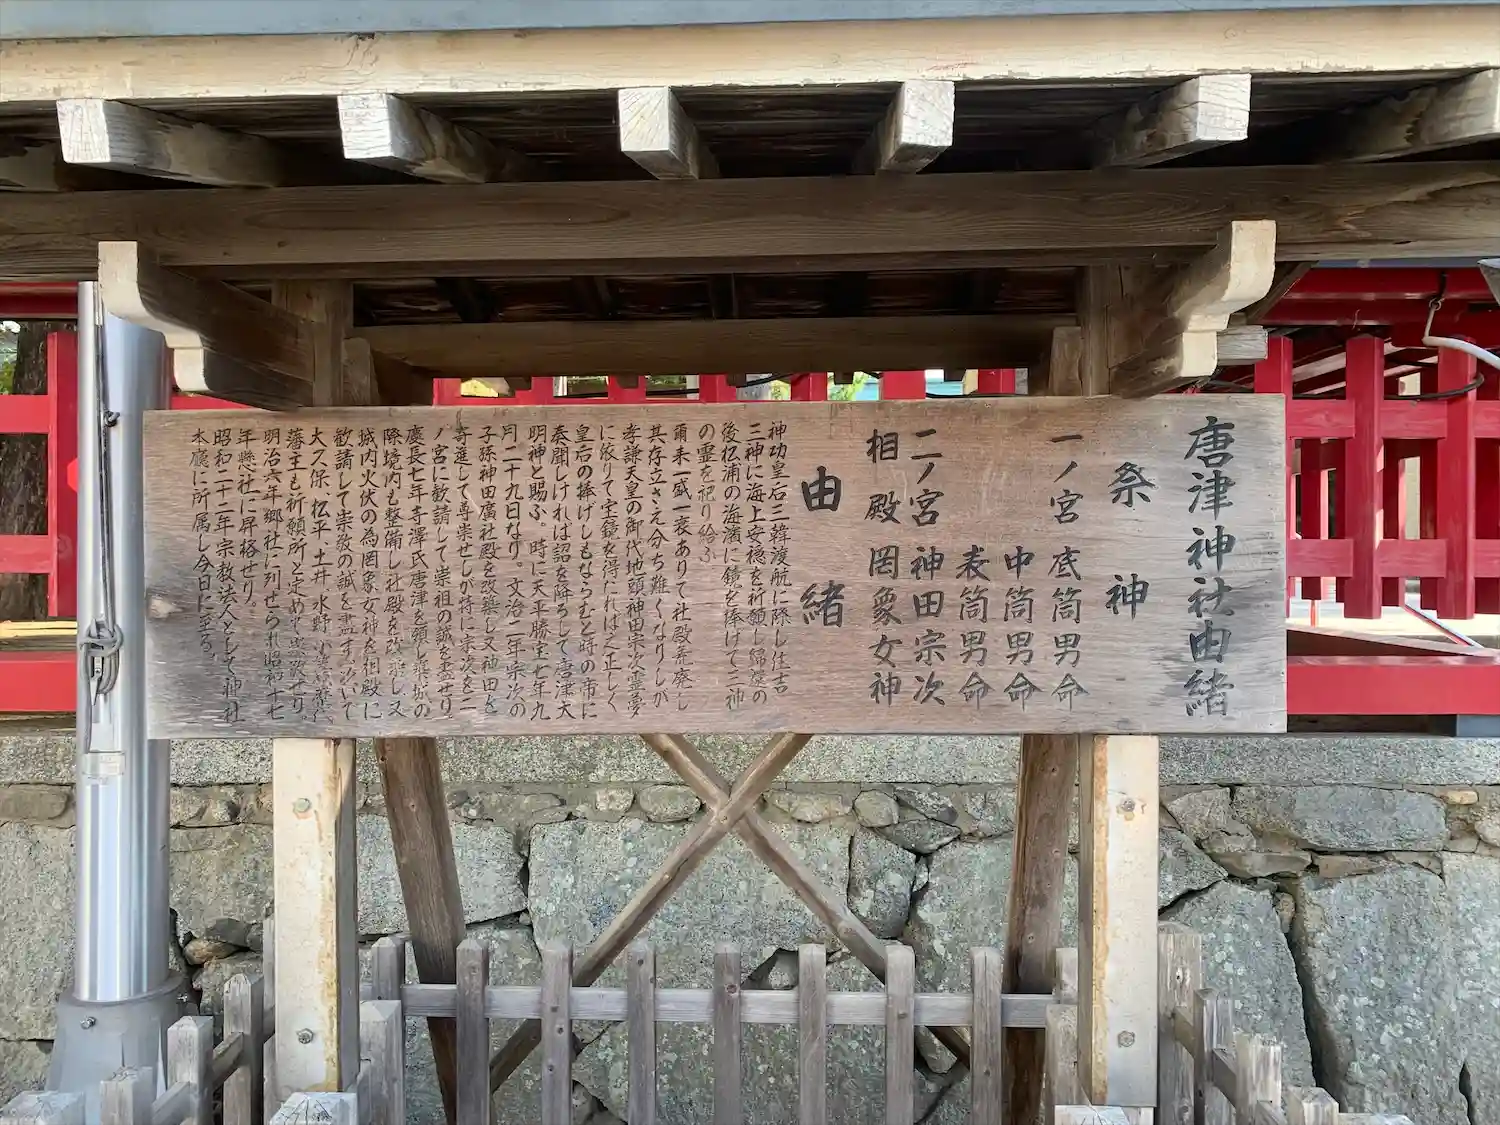 唐津神社由緒
祭神
一ノ宮 底筒男命
中筒男命
表筒男命
二ノ宮 神田宗次
相殿 罔象女神
由緒
神功皇后三韓渡航に際し住吉
三神に海上安穏を祈願し帰朝の
後松浦の海濱に鏡を捧げて三神
の霊を祀り給ふ
爾来一盛一衰ありて社殿荒廃し
其存立さえ分ち難くなりしが
孝謙天皇の御代地頭神田宗次霊夢
に依りて宝鏡を得たれば之正しく
皇后の捧げしものならむと時の帝に
奏聞しければ詔を降ろして唐津大
明神と賜ふ。時に天平勝宝七年九
月二十九日なり。文治二年宗次の
子孫神田廣社殿を改築し又神田を
寄進して尊崇せしが特に宗次を二
ノ宮に歓請して崇祖の誠を盡せり。
慶長七年寺澤氏唐津を領し築城の
際境内も整備し社殿を改築し又
城内火伏の為罔象女神を相殿に
歓請して崇敬の誠を盡す。次いで
大久保、松平、土井、水野、小笠原歴代
藩主も祈願所と定め
明治六年郷社に列せられ昭和十七
年懸社に昇格せり。
昭和二十二年宗教法人として神社
本廳に所属し今日に至る。